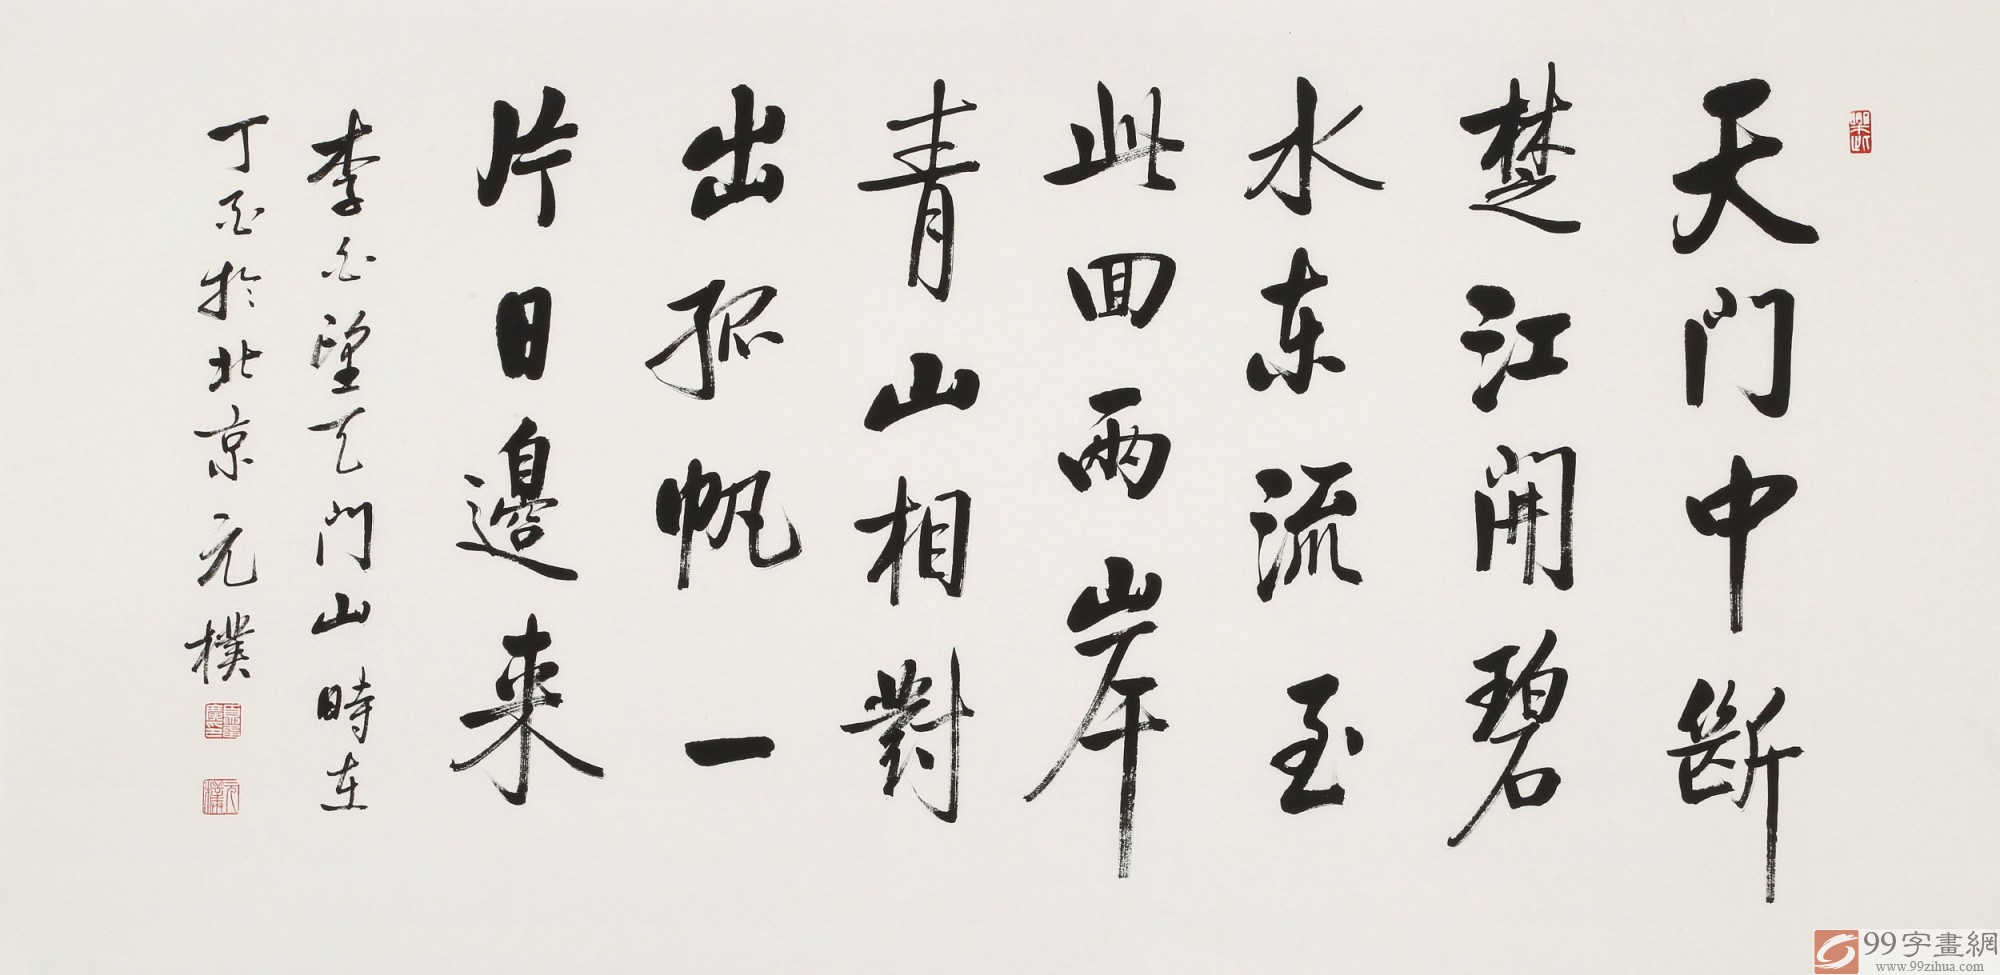 天门中断
楚江開碧
水东流至
此回两岸
青山相對
出孤帆一
片日邊来
李白望天门山時在
丁酉於北京元樸
99字畫網
www.99zihua.com